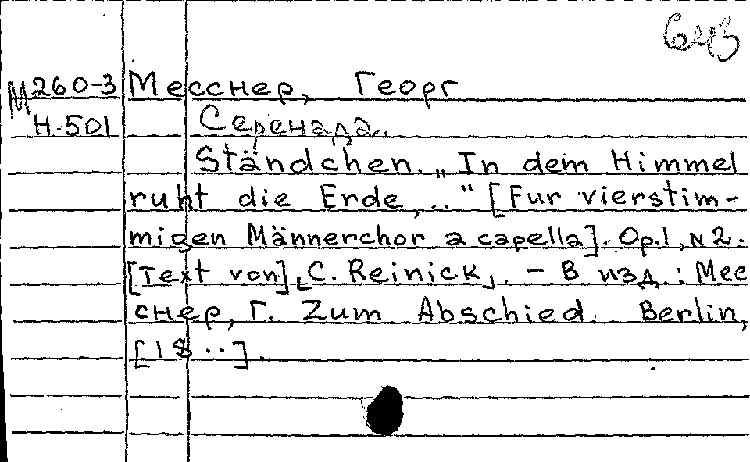 643
М260-3 Месснер, Георг
Н-501 Серенада.
Ständchen. „In dem Himmel
ruht die Erde, .." [Fur vierstim-
migen Männerchor a capella]. Op.1, N2.
[Text von] C. Reinick. – В изд.: Мес
снер, Г. Zum Abschied. Berlin,
[18..].